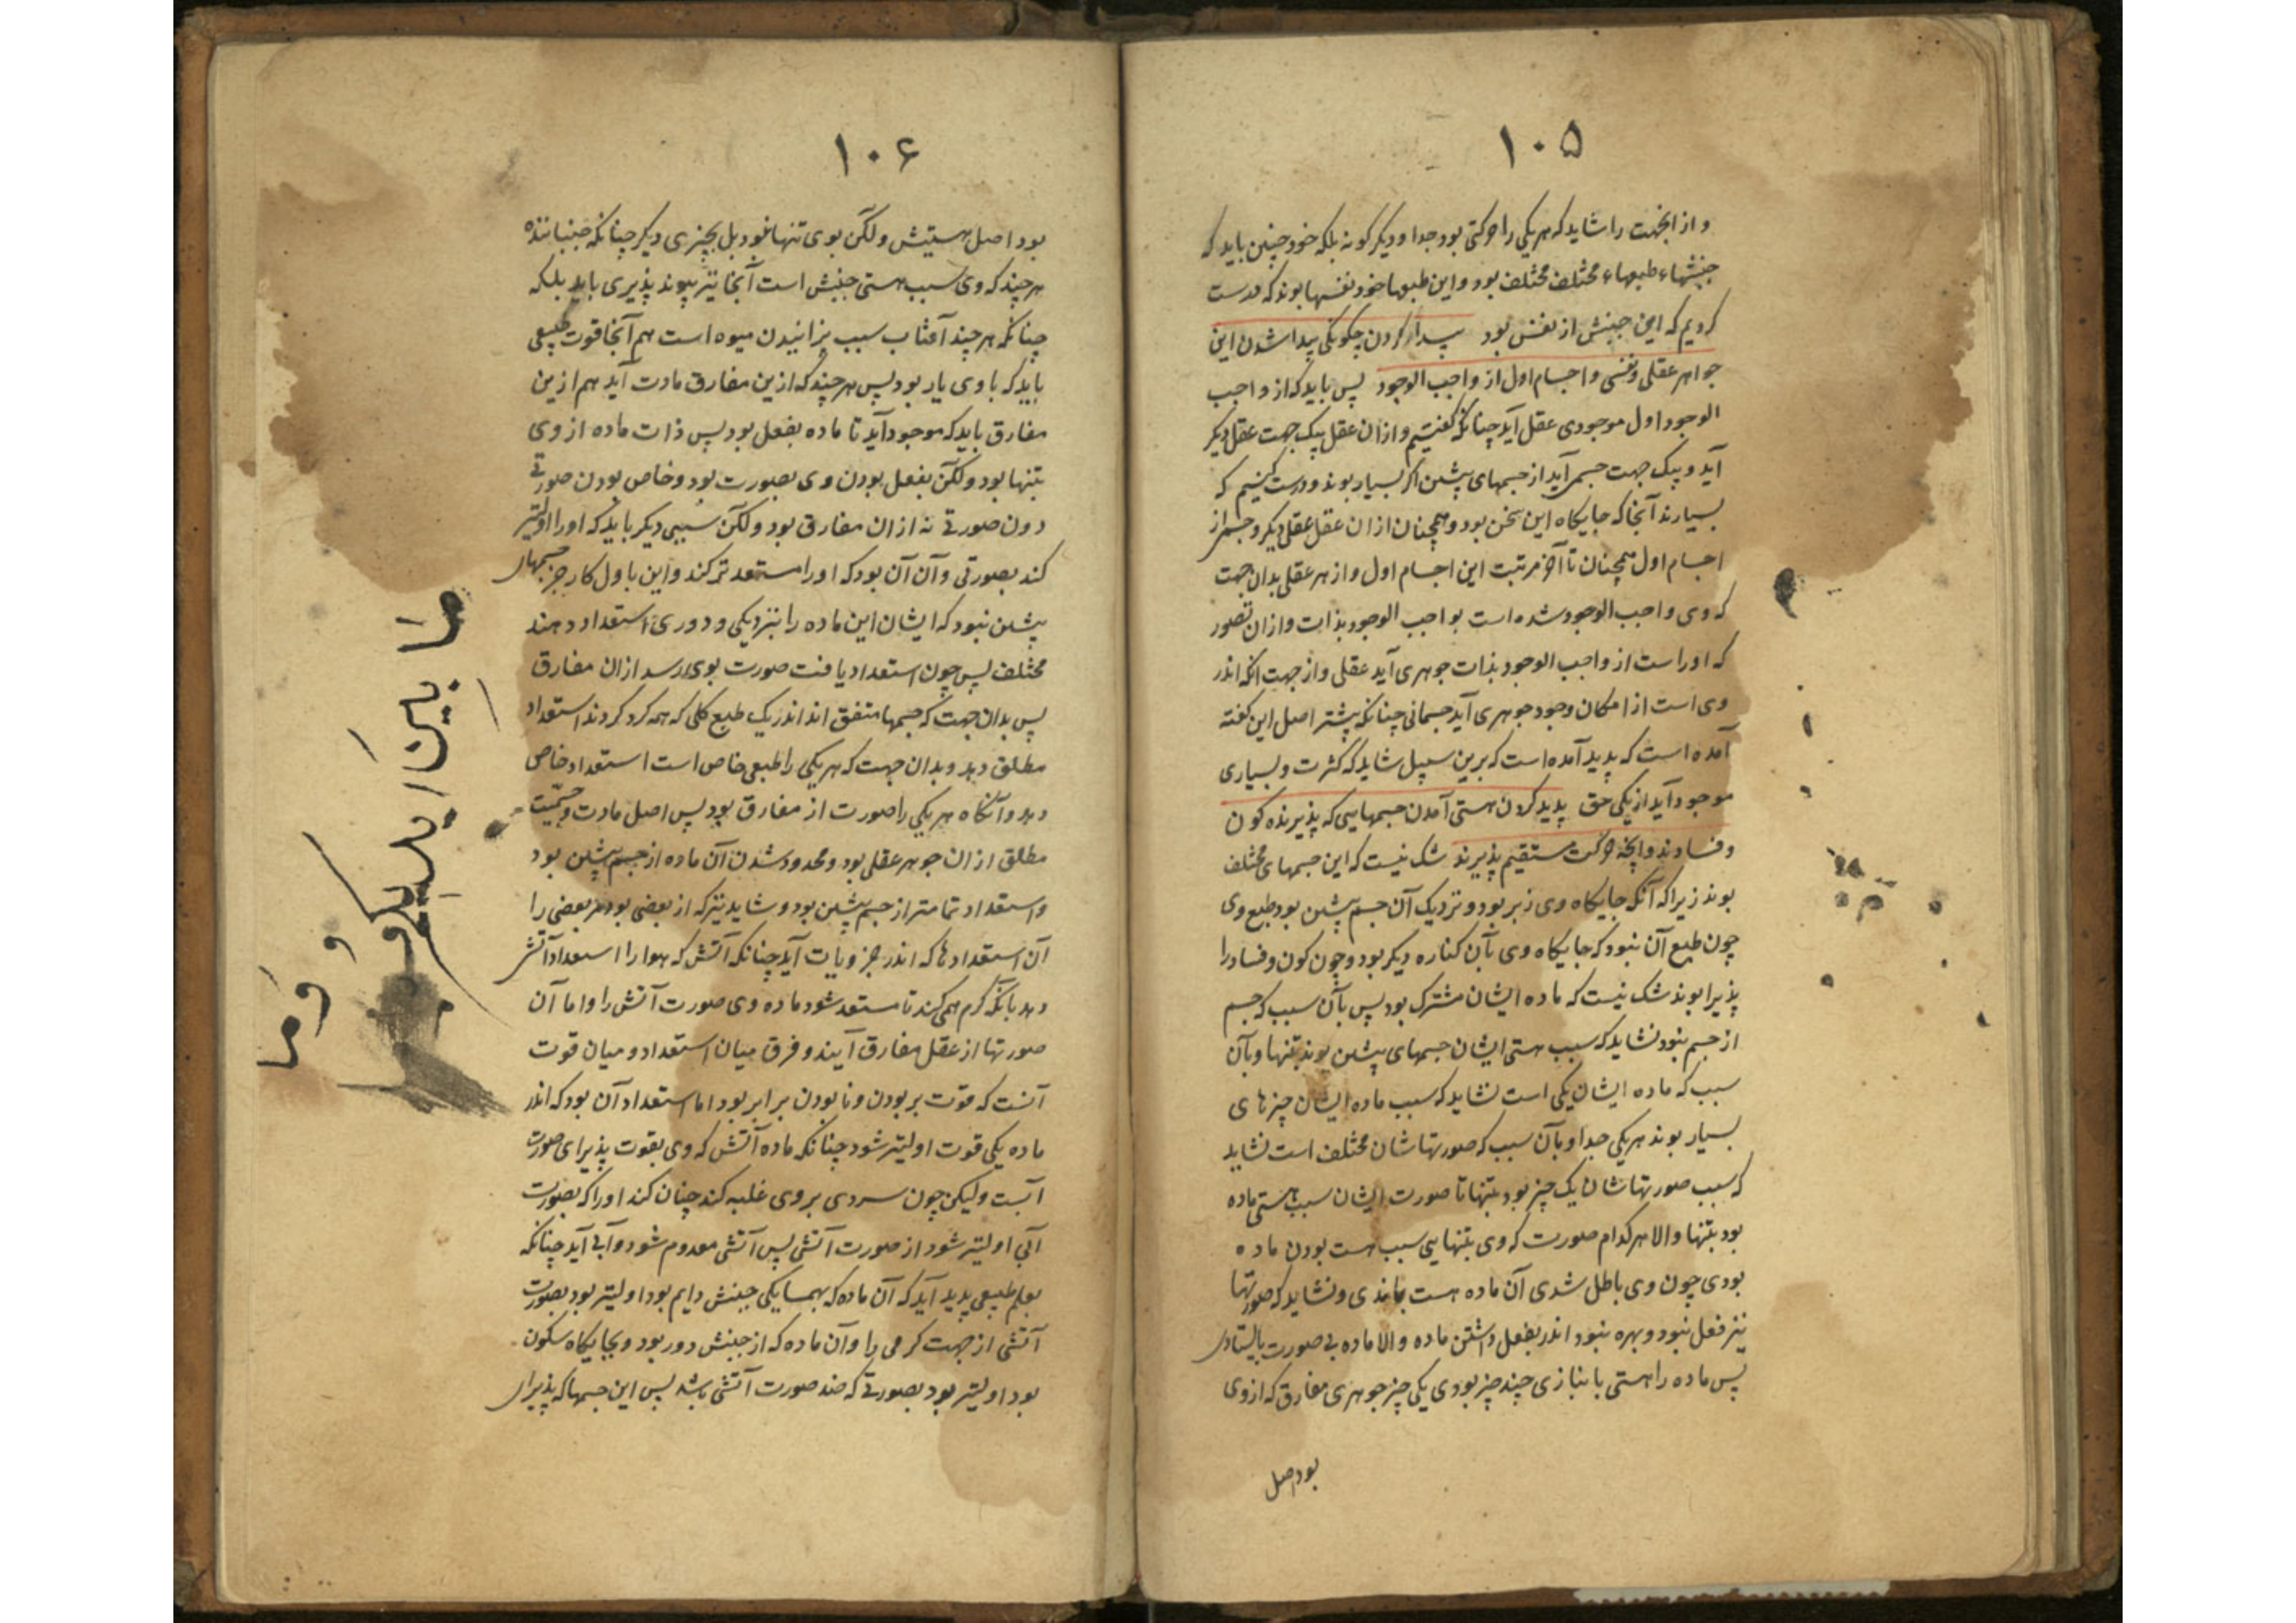 ۱۰۵
و از انجهت را شاید که هر یکی را حرکتی بود جدا و دیگر گونه بلکه خود چنین باید که
جنبشهاء طبعهاء مختلف مختلف بود و این طبعها خود نفسها بوند که درست
کردیم که این جنبش از نفس بود پیدا کردن چگونگی پیدا شدن این
جواهر عقلی و نفسی و اجسام اول از واجب الوجود پس باید که از واجب
الوجود اول موجودی عقل آید چنانکه گفتیم و از ان عقل بیک جهت عقل دیگر
آید و بیک جهت جسمی آید از جسمهای پیشین اگر بسیار بوند و درست کنیم که
بسیارند آنجا که جایگاه این سخن بود و همچنان از ان عقل عقلی دیگر و جسمی از
اجسام اول همچنان تا آخر مرتبت این اجسام اول و از هر عقلی بدان جهت
که وی واجب الوجود شده است بواجب الوجود بذات و از ان تصور
که او راست از واجب الوجود بذات جوهری آید عقلی و از جهت انکه اندر
وی است از امکان وجود جوهری آید جسمانی چنانکه پیشتر اصل این گفته
آمده است که پدید آمده است که برین سبیل شاید که کثرت و بسیاری
موجود آید از یکی حق پدید کردن هستی آمدن جسمهایی که پذیرنده کون
و فسادند وانچه حرکت مستقیم پذیرند شک نیست که این جسمهای مختلف
بوند زیرا که آنکه جایگاه وی زبر بود و نزدیک آن جسم پیشین بود طبع وی
چون طبع آن نبود که جایگاه وی بآن کناره دیگر بود و چون کون و فساد را
پذیرا بوند شک نیست که ماده ایشان مشترک بود پس بآن سبب که جسم
از جسم نبود نشاید که سبب هستی ایشان جسمهای پیشین بوند بتنها و بآن
سبب که ماده ایشان یکی است نشاید که سبب ماده ایشان چیزهای
بسیار بوند هر یکی جدا و بآن سبب که صورتهاشان مختلف است نشاید
که سبب صورتهاشان یک چیز بود بتنها تا صورت ایشان سبب هستی ماده
بود بتنها والا هر کدام صورت که وی بتنهایی سبب هست بودن ماده
بودی چون وی باطل شدی آن ماده هست بماندی و نشاید که صورتها
نیز فعل نبود و بهره نبود اندر بفعل داشتن ماده والا ماده بی صورت بایستادی
پس ماده را هستی بانبازی چند چیز بودی یکی چیز جوهری مفارق که از وی
بود اصل
۱۰۶
بود اصل هستیش ولکن بوی تنها نبود بل بچیزی دیگر چنانکه جنباننده
هر چند که وی سبب هستی جنبش است آنجا نیز پیوند پذیری باید بلکه
چنانکه هر چند آفتاب سبب پزانیدن میوه است هم آنجا قوت طبیعی
باید که با وی یار بود پس هر چند که ازین مفارق مادت آید هم ازین
مفارق باید که موجود آید تا ماده بفعل بود پس ذات ماده از وی
بتنها بود ولکن بفعل بودن وی بصورت بود و خاص بودن صورتی
دون صورتی نه از ان مفارق بود ولکن سببی دیگر باید که او را اولیتر
کند بصورتی و آن آن بود که او را مستعدتر کند و این باول کار جز جسمهای
پیشین نبود که ایشان این ماده را بنزدیکی و دوری استعداد دهند
مختلف پس چون استعداد یافت صورت بوی رسد ازان مفارق
پس بدان جهت که جسمها متفق اند اندر یک طبع کلی که همه گرد گردند استعداد
مطلق دهد و بدان جهت که هر یکی را طبعی خاص است استعداد خاص
دهد و آنگاه هر یکی را صورت از مفارق بود پس اصل مادت و جسمیت
مطلق از ان جوهر عقلی بود و محدود شدن آن ماده از جسم پیشین بود
و استعداد تمامتر از جسم پیشین بود و شاید نیز که از بعضی بود مر بعضی را
آن استعدادها که اندر جزویات آید چنانکه آتش که هوا را استعداد آتشی
دهد بآنکه گرم همی کند تا مستعد شود ماده وی صورت آتش را و اما آن
صورتها از عقل مفارق آیند و فرق میان استعداد و میان قوت
آنست که قوت بر بودن و نابودن برابر بود اما استعداد آن بود که اندر
ماده یکی قوت اولیتر شود چنانکه ماده آتش که وی بقوت پذیرای صورت
آبست ولیکن چون سردی بر وی غلبه کند چنان کند او را که بصورت
آبی اولیتر شود از صورت آتشی پس آتشی معدوم شود و آبی آید چنانکه
بعلم طبیعی پدید آید که آن ماده که بهمسایگی جنبش دایم بود اولیتر بود بصورت
آتشی از جهت گرمی را و آن ماده که از جنبش دور بود و بجایگاه سکون
بود اولیتر بود بصورتی که ضد صورت آتشی باشد پس این جسمها که پذیرای
ما بین
و وما